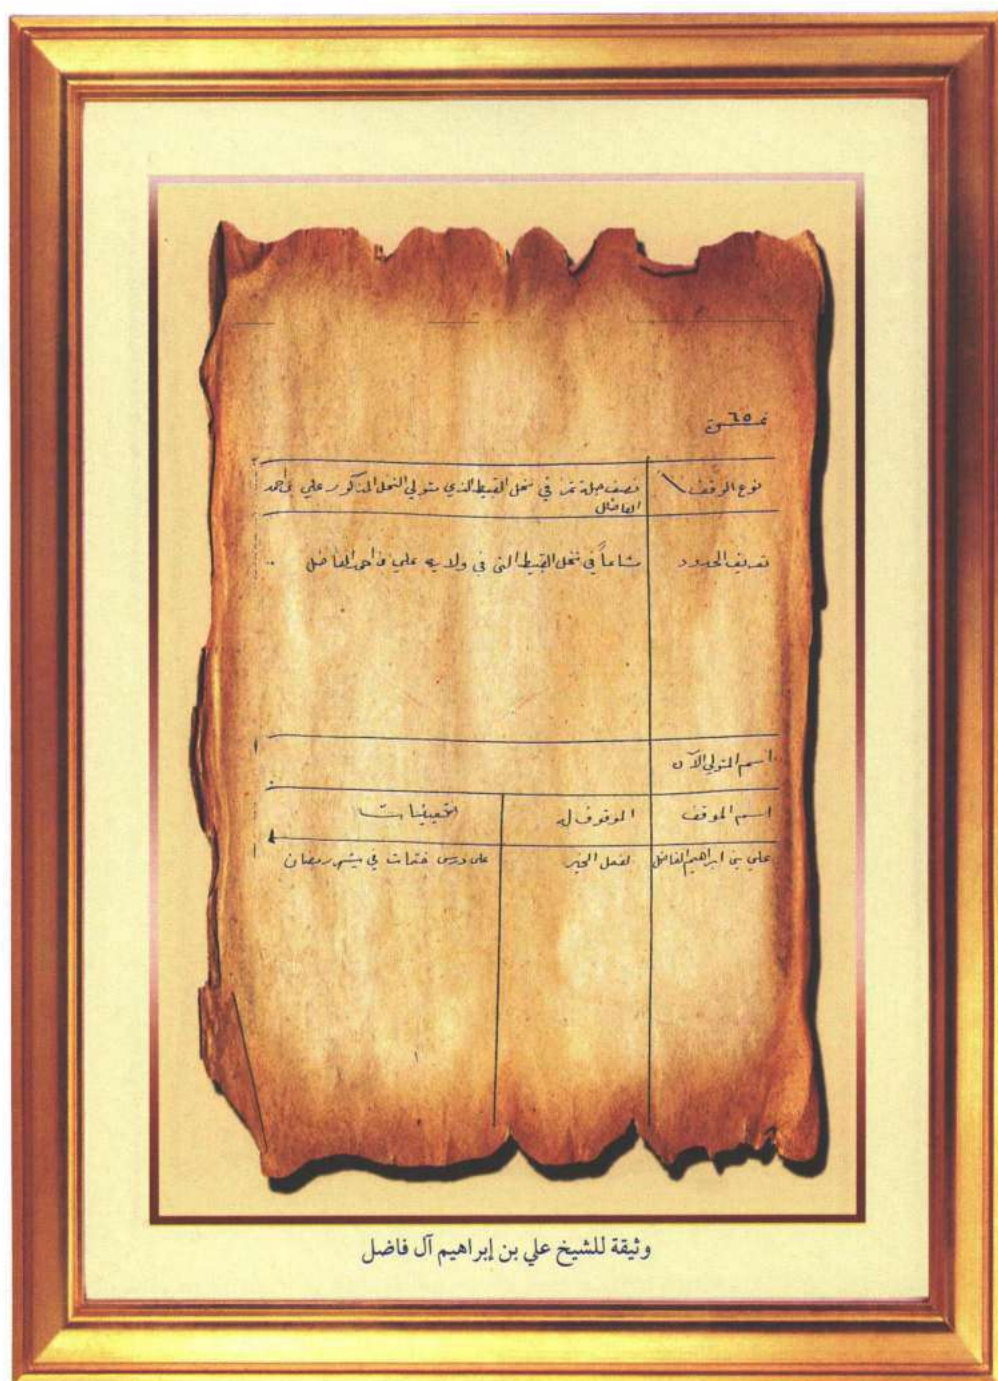 نمـ٦٥ـرة
نوع الوقف
نصف جلة تمر في نخل القيط الذي متولي النخل المذكور علي بن احمد
الفاضل
تعريف الحدود
مشاعاً في نخل القيط التي في ولاية علي بن احمد الفاضل
اسم المتولي الآن
اسم الموقف
الموقوف له
التعيينات
علي بن ابراهيم الفاضل
لفعل الخير
على درس ختمات في شهر رمضان
وثيقة للشيخ علي بن إبراهيم آل فاضل